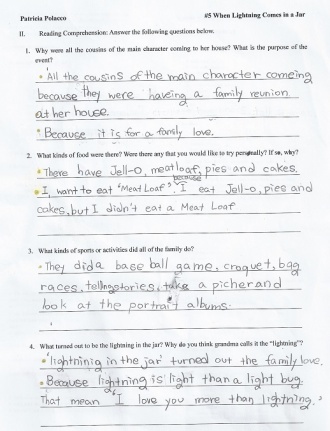 Patricia Polacco #5 When Lightning Comes in a Jar
II. Reading Comprehension: Answer the following questions below.
1. Why were all the cousins of the main character coming to her house? What is the purpose of the
event?
• All the cousins of the main character comeing
because they were haveing a family reunion
at her house.
• Because it is for a family love.
2. What kinds of food were there? Were there any that you would like to try personally? If so, why?
• There have Jell-O, meatloaf, pies and cakes.
because
• I want to eat "Meat Loaf". I eat Jell-O, pies and
cakes, but I didn't eat a Meat Loaf
3. What kinds of sports or activities did all of the family do?
• They did a base ball game, croquet, bag
races, telling stories, take a picher and
look at the portrait albums.
4. What turned out to be the lightning in the jar? Why do you think grandma calls it the "lightning"?
• 'lightninig in the jar' turned out the family love.
• Because lightning is light than a light bug.
That mean "I love you more than lightning."